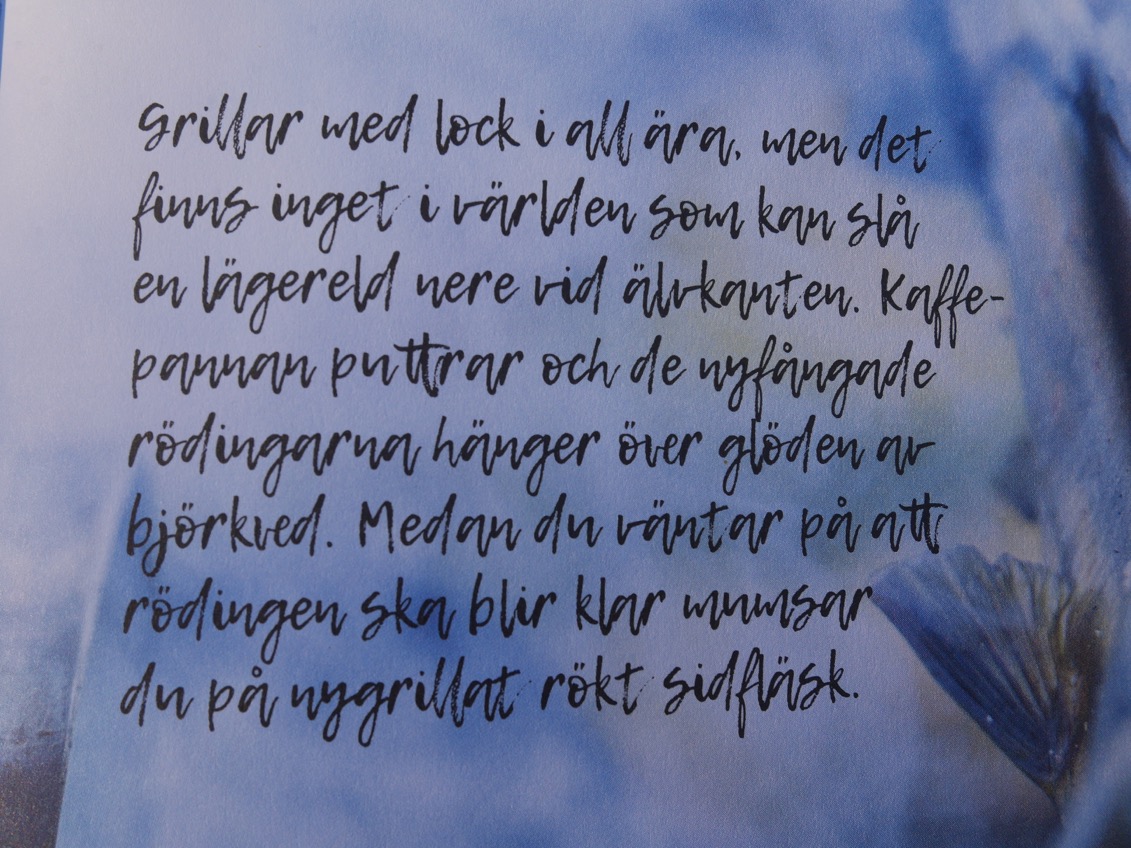 Grillar med lock i all ära, men det
finns inget i världen som kan slå
en lägereld nere vid älvkanten. Kaffe-
pannan puttrar och de nyfångade
rödingarna hänger över glöden av
björkved. Medan du väntar på att
rödingen ska blir klar mumsar
du på nygrillat rökt sidfläsk.